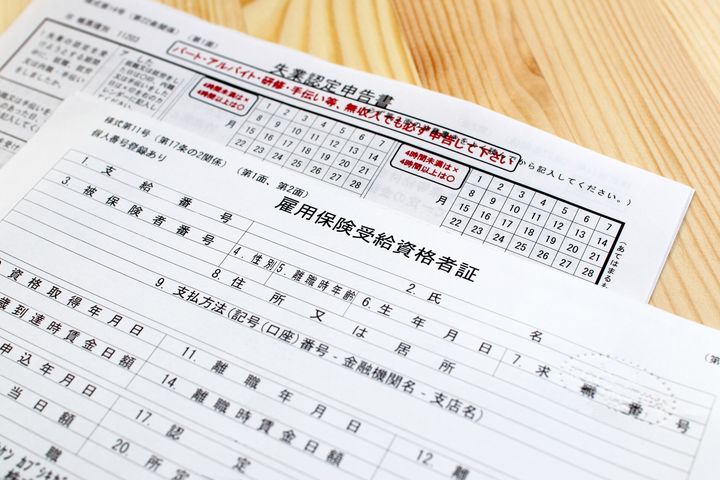 様式第14号（第22条関係）（第1面）
失業認定申告書
パート・アルバイト・研修・手伝い等、無収入でも必ず申告して下さい
から記入してください。）
4時間未満は×
4時間以上は○
月
1 2 3 4 5 6 7
8 9 10 11 12 13 14
15 16 17 18 19 20 21
22 23 24 25 26 27 28
4時間未満は×
4時間以上は○
月
1 2 3 4 5 6 7
8 9 10 11 12 13 14
15 16 17 18 19 20 21
22 23 24 25 26 27 28
（あてはまる
様式第11号（第17条の2関係）（第1面、第2面）
個人番号登録あり
雇用保険受給資格者証
1. 支給番号
2. 氏名
3. 被保険者番号
4. 性別
5. 離職時年齢
6. 生年月日
7. 求職番号
8. 住所又は居所
9. 支払方法(記号(口座)番号 - 金融機関名 - 支店名)
資格取得年月日
11. 離職年月日
12. 離
歳到達時賃金日額
14. 離職時賃金日額
申込年月日
17. 認定
当日額
20. 所定
職